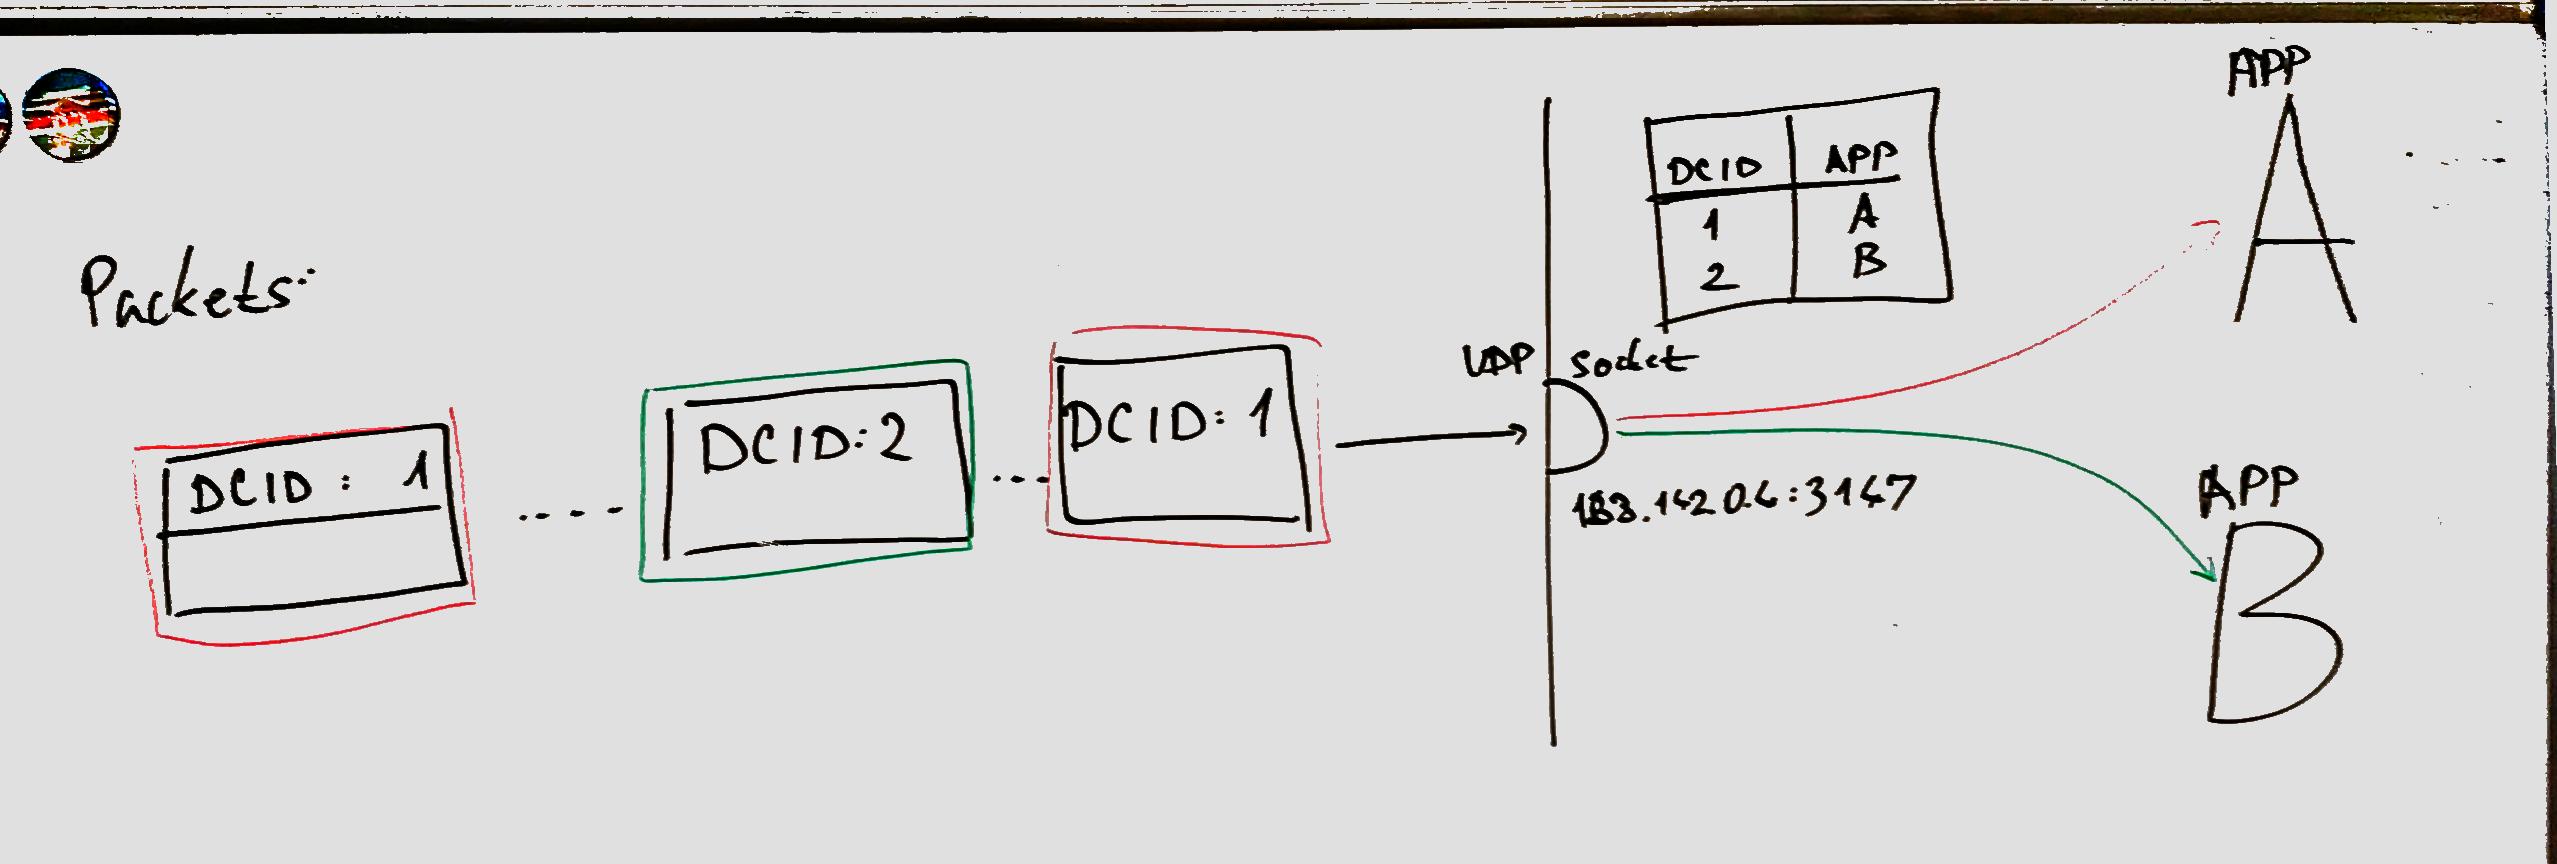 Packets:
DCID: 1
DCID: 2
DCID: 1
UDP socket
DCID APP
1 A
2 B
APP
A
APP
B